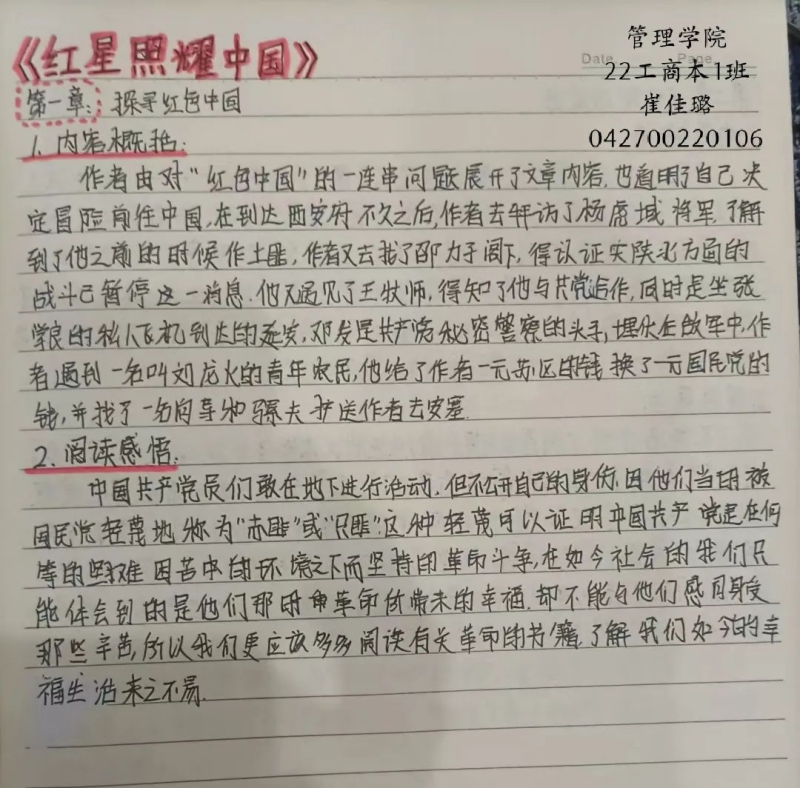 《红星照耀中国》
Date Page
管理学院
22工商本1班
崔佳璐
042700220106
第一章: 探寻红色中国
1. 内容概括:
作者由对“红色中国”的一连串问题展开了文章内容,也道明了自己决
定冒险前往中国,在到达西安府不久之后,作者去拜访了杨虎城将军了解
到了他之前的时候作土匪,作者又去找了邵力子阁下,得认证实陕北方面的
战斗已暂停这一消息.他又遇见了王牧师,得知了他与共党合作,同时是坐张
学良的私人飞机到达的延安,邓发是共产党秘密警察的头子,埋伏在敌军中,作
者遇到一名叫刘龙火的青年农民,他给了作者一元苏区的钱换了一元国民党的
钱,并找了一名向导和骡夫护送作者去安塞.
2. 阅读感悟:
中国共产党员们敢在地下进行活动,但不公开自己的身份,因他们当时被
国民党轻蔑地称为“赤匪”或“共匪”这种轻蔑可以证明中国共产党是在何
等的艰难困苦中的环境之下而坚持的革命斗争,在如今社会的我们只
能体会到的是他们那时革命所带来的幸福.却不能与他们感同身受
那些辛苦,所以我们更应该多多阅读有关革命的书籍.了解我们如今的幸
福生活来之不易.